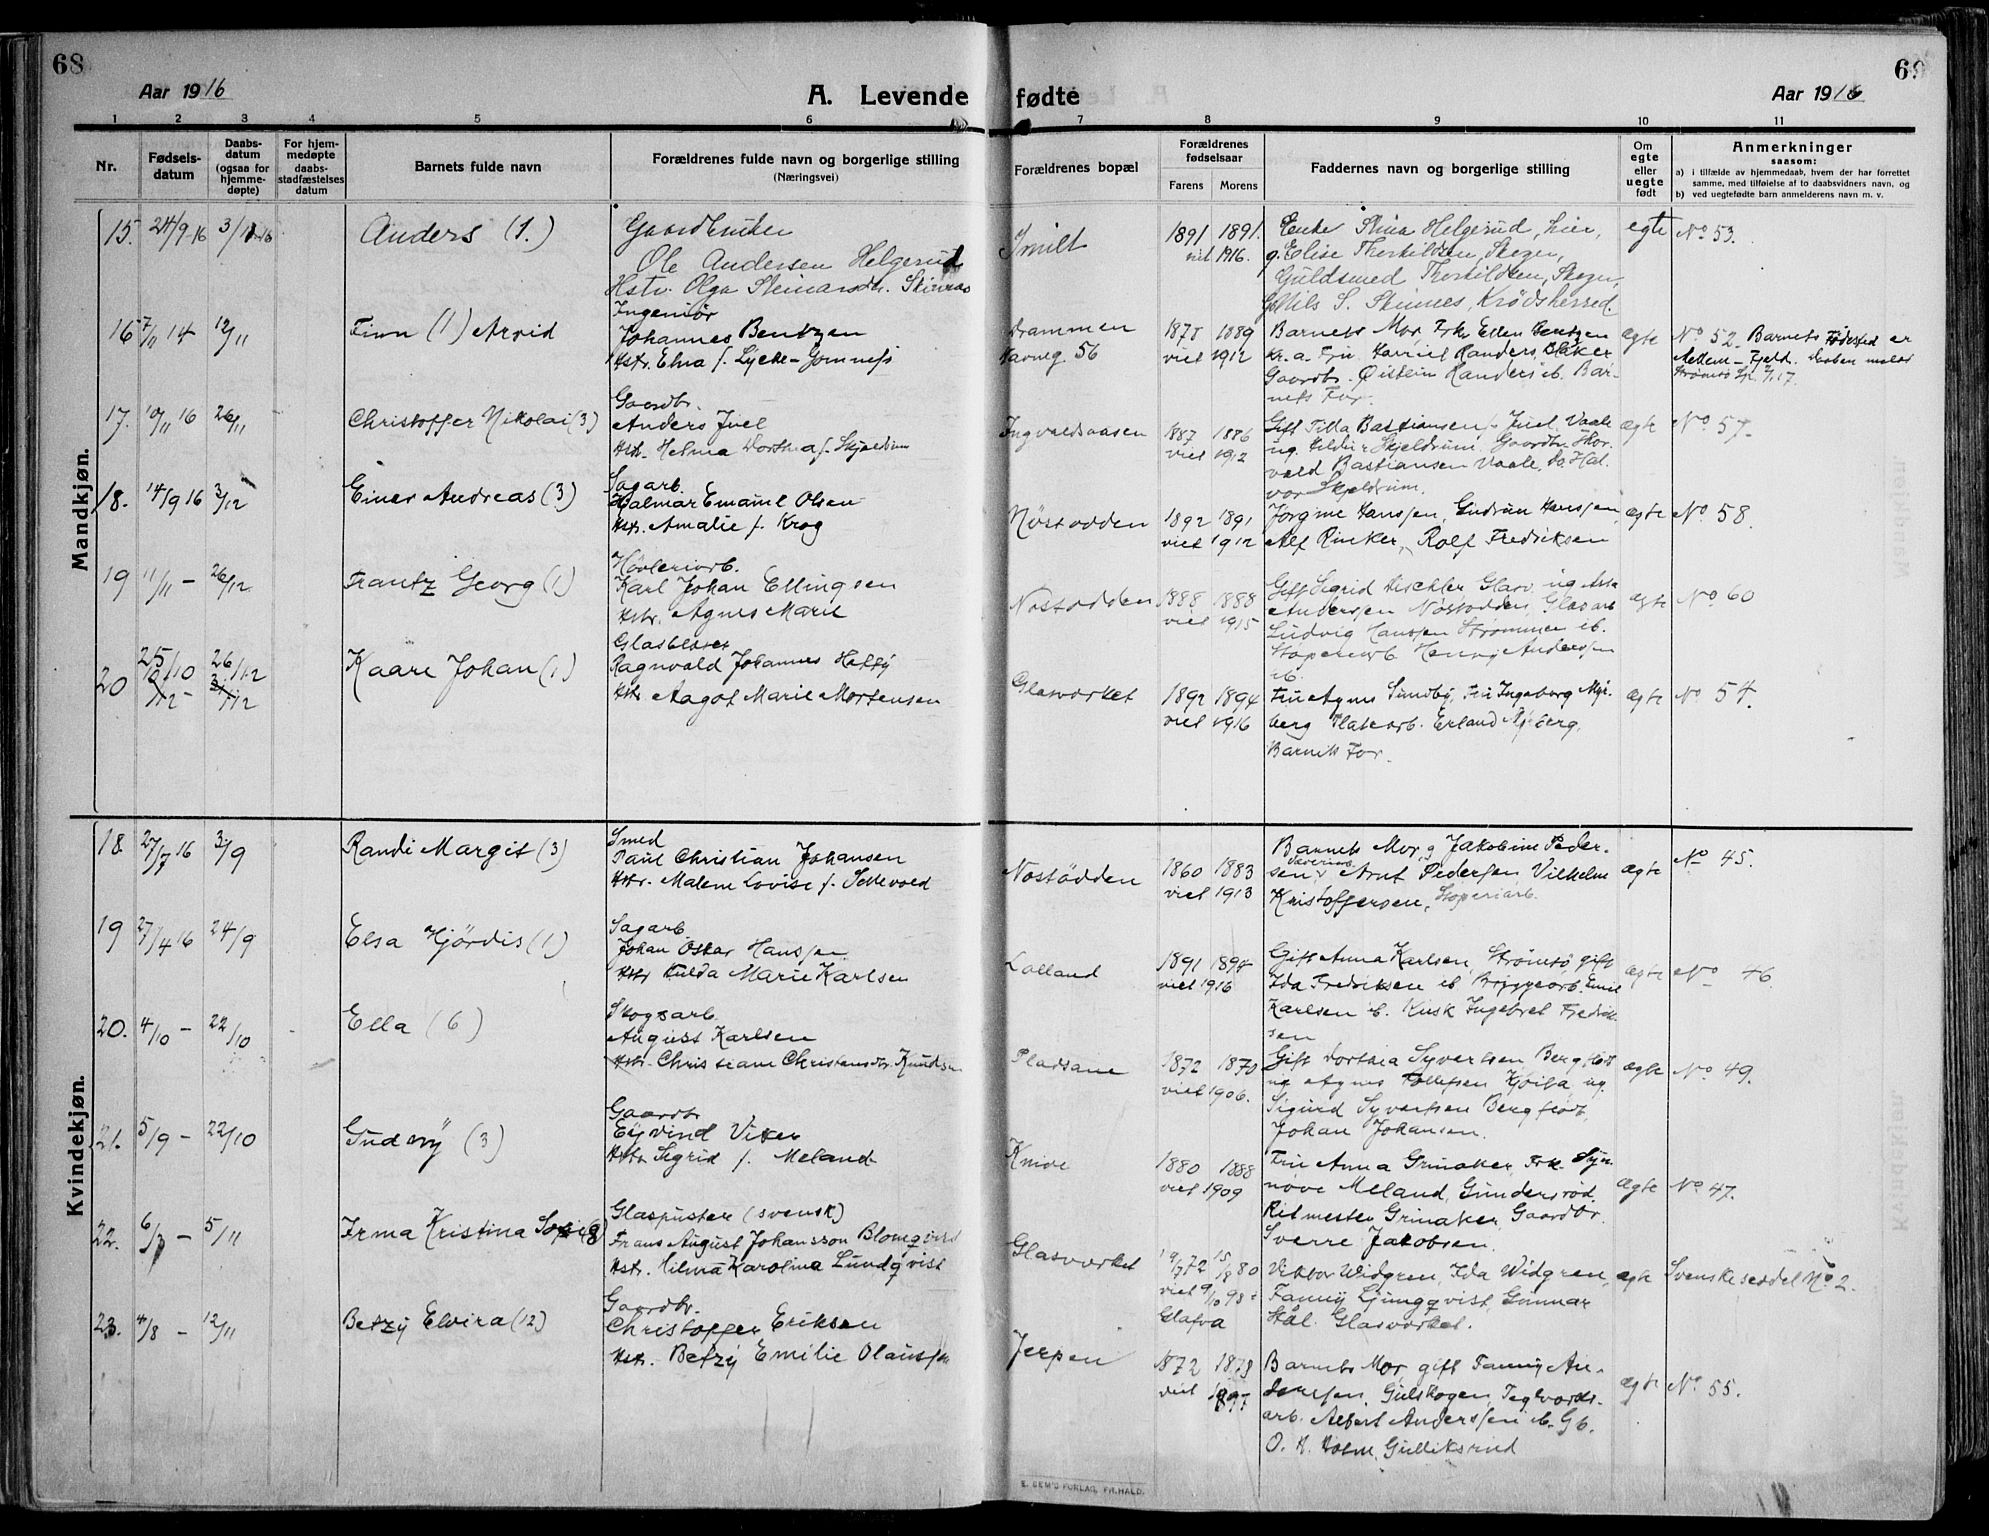 68
69
Aar 1916
A. Levende fødte
Aar 1916
1 2 3 4 5 6 7 8 9 10 11
Nr.
Fødsels-
datum
Daabs-
datum
(ogsaa for
hjemme-
døpte)
For hjem-
medøpte
daabs-
stadfæstelses
datum
Barnets fulde navn
Forældrenes fulde navn og borgerlige stilling
(Næringsvei)
Forældrenes bopæl
Forældrenes
fødselsaar
Farens Morens
Faddernes navn og borgerlige stilling
Om
egte
eller
uegte
født
Anmerkninger
saasom:
a) i tilfælde av hjemmedaab, hvem der har forrettet
samme, med tilføielse af to daabsvidners navn, og
b) ved uegtefødte barn anmelderens navn m. v.
Mandkjøn.
15. 24/9 16
Anders (1.)
Gaardbruker
Ole Andersen Helgerud
Hstr. Olga
1891 1891.
1916.
Enke Stina Helgerud, Lier,
g. Elise Thorkildsen, Skoger,
Guldsmed Thorkildsen, Skoger,
Nils S. Skinnes, Krødsherred.
egte
No 53.
16 7/11 14 12/11
Finn (1) Arvid
Ingeniør
Johannes Bentzen
Hstr. Elna f. Lycke-
Drammen
Havneg. 56
1878 1889
viet 1912
Barnets Mor, Frk. Ellen Bentzen
Kr.a. Fru Harriet Randers, Blaker
Gaardbr. Øistein Randers ib. Bar-
nets Far.
ægte
No 52. Barnets Fødested er
17. 10/11 16 26/11
Christoffer Nikolai (3)
Gaardbr.
Anders Juel
Hstr. Helma Dorthea f. Skjeldrum
Ingvaldsaasen
1887 1886
viet 1912
Gift Tilla Bastiansen f. Juel, Vaale
ug. Hilda Skjeldrum, Gaardbr. Thor-
vald Bastiansen Vaale, do. Hal-
vor Skjeldrum.
ægte
No 57.
18. 14/9 16 3/12
Einar Andreas (3)
Sagarb.
Halmar Emanuel Olsen
Hstr. Amalie f. Krog
Nøstodden
1892 1891
viet 1912
Jørgine Hanssen, Gudrun Hanssen,
Alf Rinker, Rolf Fredriksen
ægte
No 58.
19 11/11 - 26/12
Frantz Georg (1)
Høvleriarb.
Karl Johan Ellingsen
Hstr. Agnes Marie
Nøstodden
1888 1888
viet 1915
Gift Sigrid Tischler Glasv. ug Asta
Anderssen Nøstodden, Glasarb
Ludvig Hanssen Strømmen ib.
Støperiarb Henry Anderssen
ib.
ægte
No 60
20 25/10 26/12
Kaare Johan (1)
Glasblæser
Ragnvald Johannes Hoffy
Hstr Aagot Marie Mortensen
Glasværket
1892 1894
viet 1916
Fru Agnes Sundby, Fru Ingeborg Myr-
berg Platearb. Erland Myrberg,
Barnets Far.
ægte
No 54.
Kvindekjøn.
18. 27/7 16 3/9
Randi Margit (3)
Smed
Paul Christian Johansen
Hstr. Malene Lovise f. Settevold
Nøstødden
1860 1883
viet 1913
Barnets Mor, g Jakobine Peder-
sen, Arnt Pedersen, Vilhelm
Kristoffersen, Støperiarb.
ægte
No 45.
19 27/4 16 24/9
Elsa Hjördis (1)
Sagarb.
Johan Oskar Hanssen
Hstr Hulda Marie Karlsen
Lolland
1891 1894
viet 1916
Gift Anna Karlsen, Strömsö, gift
Ida Fredriksen ib Bryggearb. Emil
Karlsen ib. Kusk Ingebret Fredrik
sen
ægte
No 46.
20. 4/10 - 22/10
Ella (6)
Skogsarb.
August Karlsen
Hstr. Christiane Christensdr. Knudsen
Pladsane
1872 1870
viet 1906.
Gift Dorthea Syvertsen Bergflødt
ug Agnes Tollefsen Kjøisa, ug.
Sigurd Syvertsen Bergflødt,
Johan Johansen.
ægte
No 49.
21. 5/9 - 22/10
Gudny (3)
Gaardbr
Eyvind Viker
Hstr Sigrid f. Meland
Knive
1880 1888
viet 1909
Fru Anna Grinaker, Frk. Syn-
nøve Meland, Gundersrød.
Ritmester Grinaker, Gaardbr.
Sverre Jakobsen.
ægte
No 47.
22. 5/11
Irma Kristina (8)
Glaspuster (svensk)
Frans August Johansson Blomqvist
Hstr. Hilma Karolina Lundqvist
Glasværket
19/7 72 15/8 80
viet 9/10 98 i
Glafva
Viktor Widgren, Ida Widgren,
Fanny Ljungqvist, Gunnar
Stål. Glasværket.
ægte
Svenske seddel No 2.
23. 4/8 - 12/11
Betzy Elvira (12)
Gaardbr.
Christoffer Eriksen
Hstr. Betzy Emilie Olaussen
Jerpen
1872 1878
viet 1897
Barnets Mor, gift Fanny An-
derssen, Gulskogen, Teglværks-
arb. Albert Anderssen ib. Gb.
O. H. Holm, Gulliksrud
ægte
No 55.
E. SEM'S FORLAG, FR.HALD.